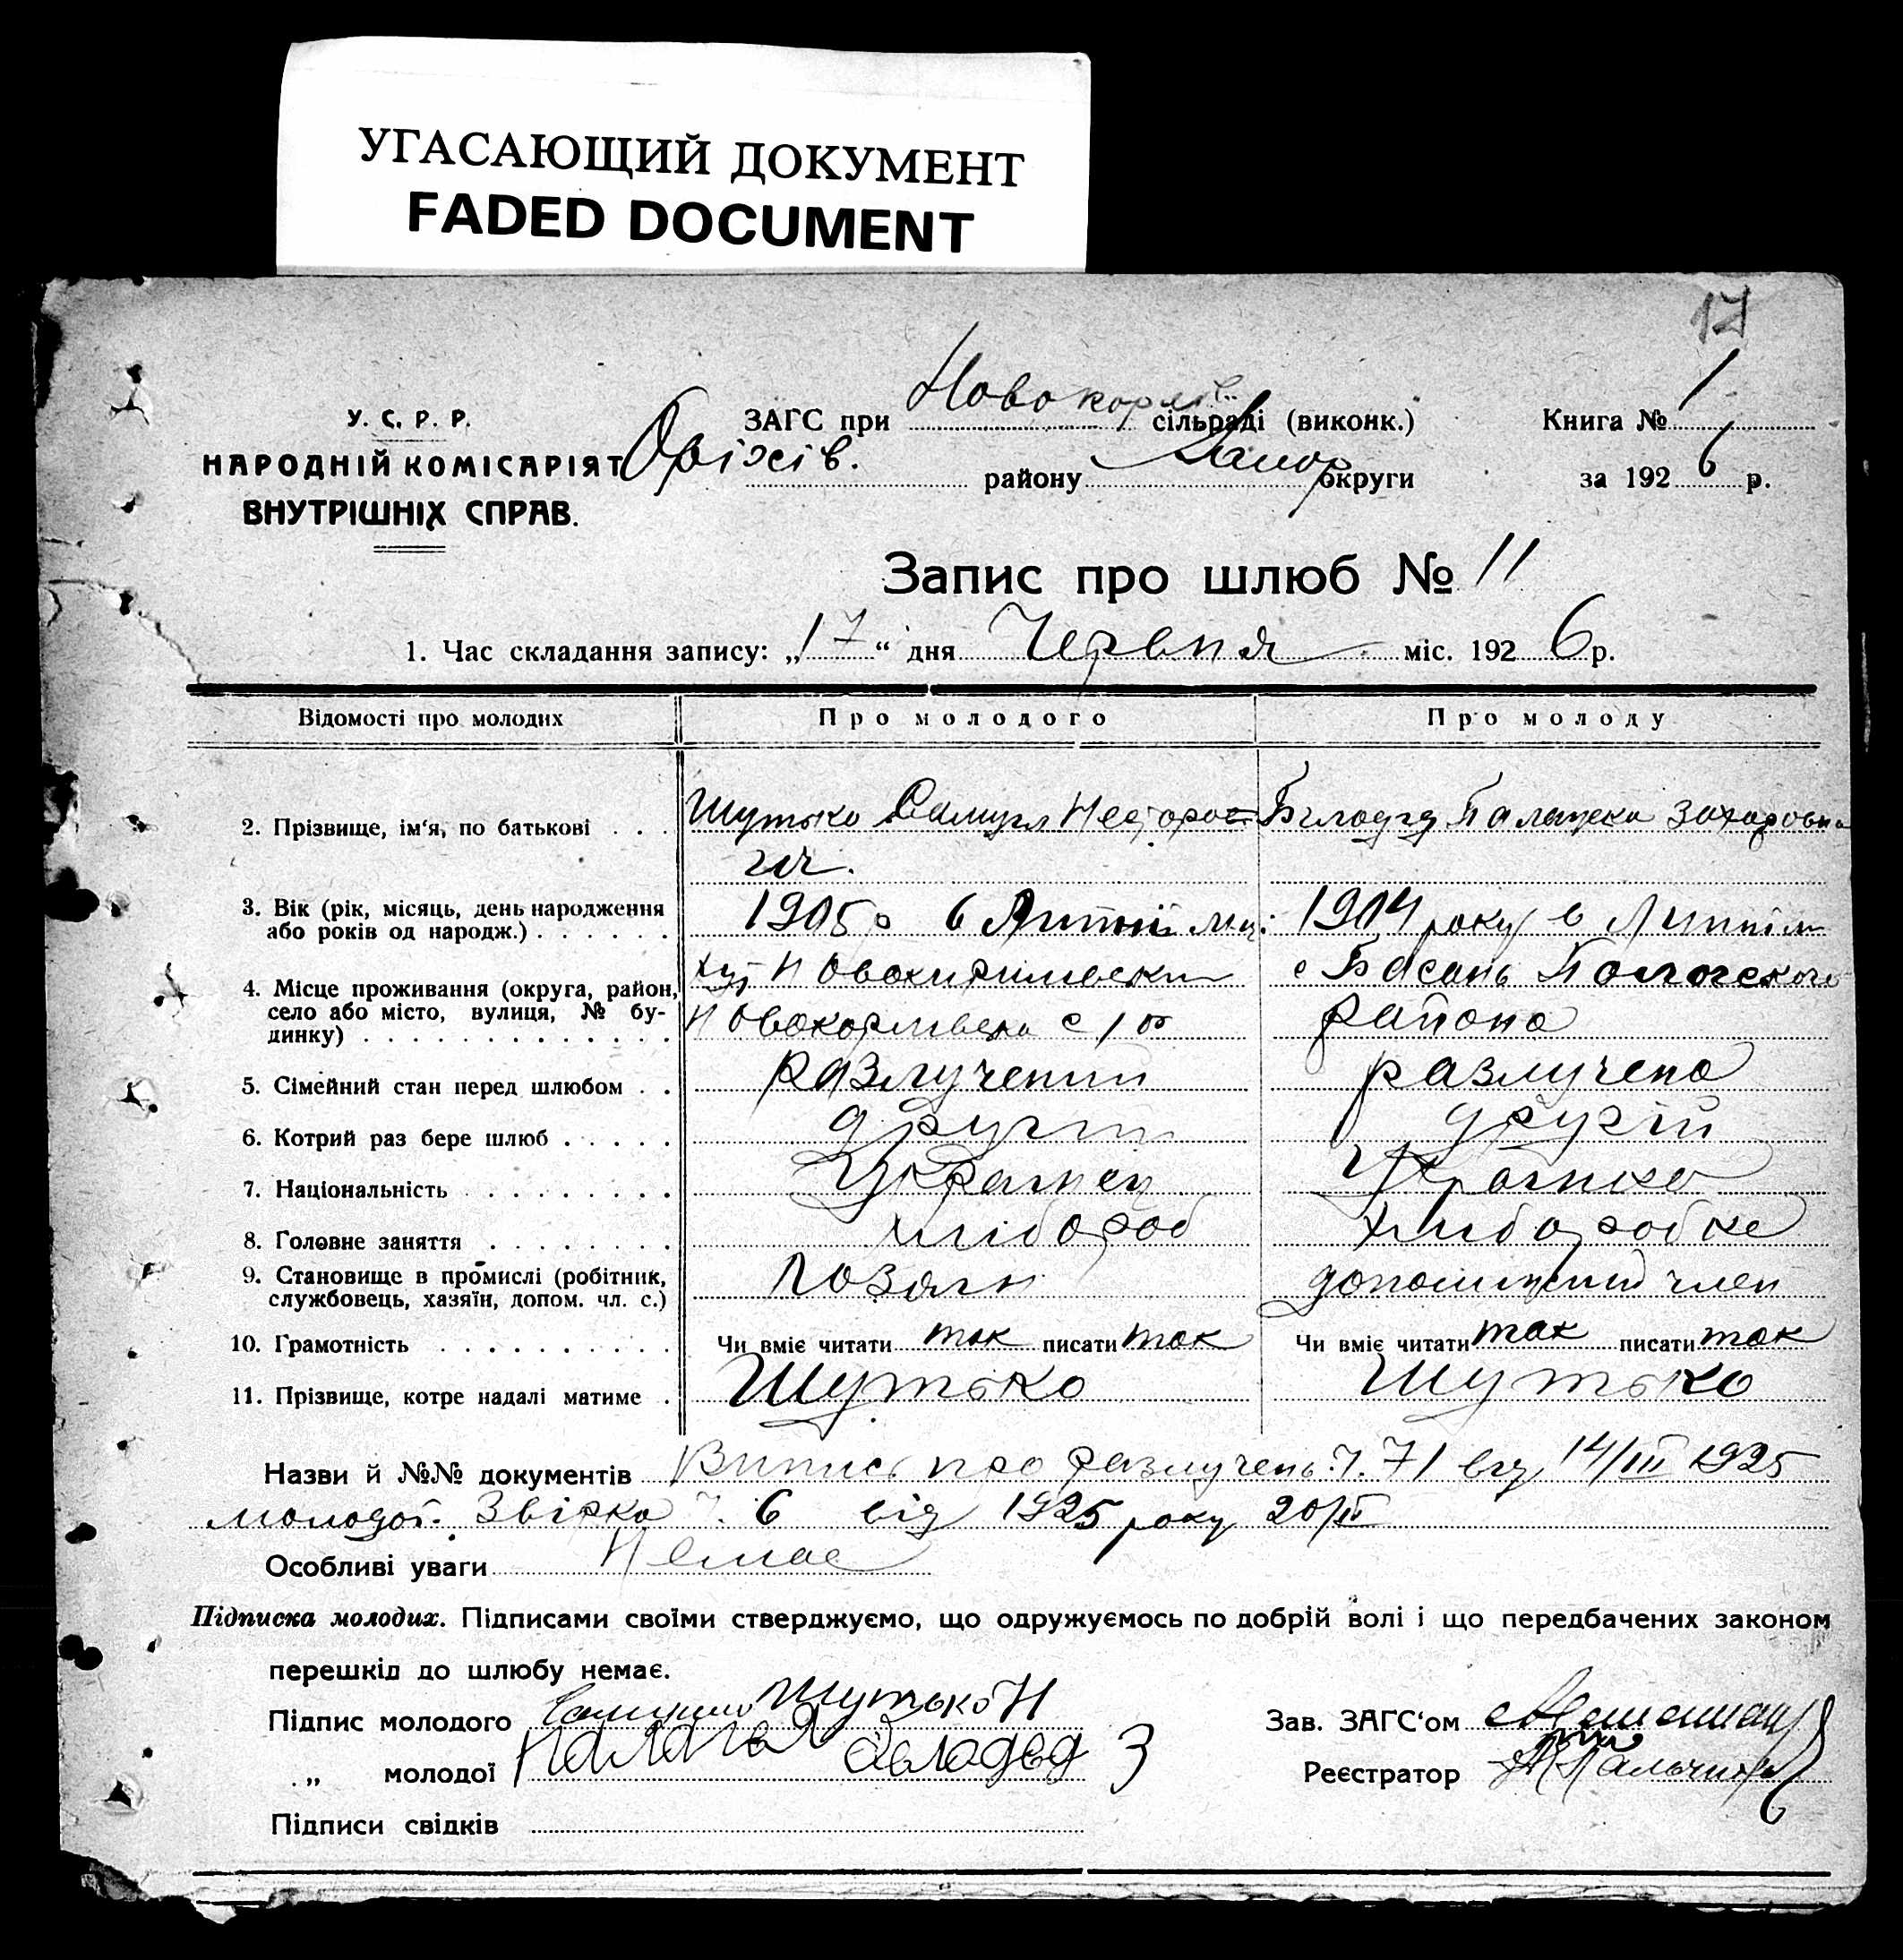 УГАСАЮЩИЙ ДОКУМЕНТ
FADED DOCUMENT
17
У. С. Р. Р.
НАРОДНІЙ КОМІСАРІЯТ
ВНУТРІШНІХ СПРАВ.
ЗАГС при Новокарл сільраді (виконк.) Книга № 1
Оріхів. району Запор округи за 1926 р.
Запис про шлюб № 11
1. Час складання запису: „17“ дня Червня міс. 1926 р.
Відомості про молодих Про молодого Про молоду
2. Прізвище, ім'я, по батькові . . . Шутько Самуил Білодід Палажка Захаровна
3. Вік (рік, місяць, день народження 1905 р 6 1904 року 6
або років од народж.) . . . . . .
4. Місце проживання (округа, район, хут с Басань Пологского
село або місто, вулиця, № бу- района
динку) . . . . . . . . . . . . .
5. Сімейний стан перед шлюбом . . разлучений разлучена
6. Котрий раз бере шлюб . . . . . другий другій
7. Національність . . . . . . . . . Українец Українка
8. Головне заняття . . . . . . . . хлібороб хліборобка
9. Становище в промислі (робітник, хозяін допоміжний член
службовець, хазяїн, допом. чл. с.)
10. Грамотність . . . . . . . . . . Чи вміє читати так писати так Чи вміє читати так писати так
11. Прізвище, котре надалі матиме . Шутько Шутько
Назви й №№ документів Випись про разлучень ч. 71 від 14/III 1925
молодої. Звірка ч. 6 від 1925 року 20/II
Особливі уваги Немає
Підписка молодих. Підписами своїми стверджуємо, що одружуємось по добрій волі і що передбачених законом
перешкід до шлюбу немає.
Підпис молодого Шутько Н Зав. ЗАГС'ом
„ молодої Палагея Біладед З Реєстратор
Підписи свідків